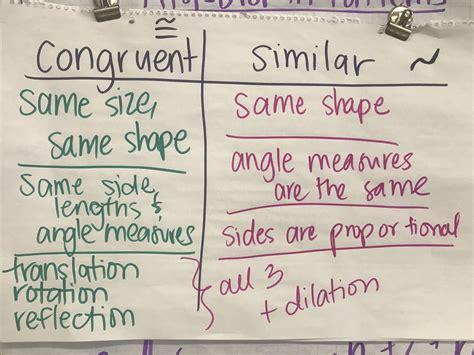 ≅
Congruent
Same size,
same shape
Same side
lengths &
angle measures
translation
rotation
reflection
Similar ~
Same shape
angle measures
are the same
sides are proportional
all 3
+ dilation